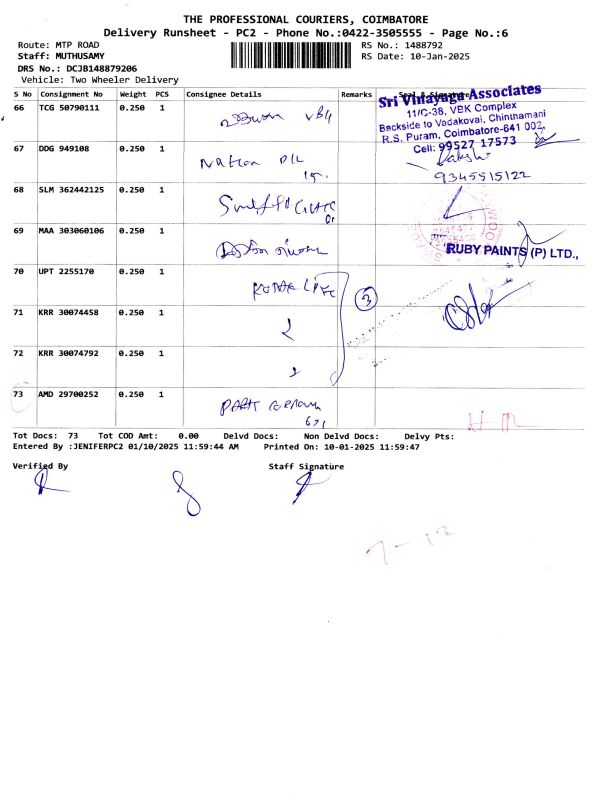 THE PROFESSIONAL COURIERS, COIMBATORE
Delivery Runsheet - PC2 - Phone No.:0422-3505555 - Page No.:6
Route: MTP ROAD RS No.: 1488792
Staff: MUTHUSAMY RS Date: 10-Jan-2025
DRS No.: DCJB148879206
Vehicle: Two Wheeler Delivery
S No Consignment No Weight PCS Consignee Details Remarks
Sri Vinayaga Associates
11/C-38, VBK Complex
Backside to Vadakovai, Chinthamani
R.S. Puram, Coimbatore-641 002.
Cell: 99527 17573
66 TCG 50790111 0.250 1
67 DDG 949108 0.250 1 Nation
9345515122
68 SLM 362442125 0.250 1
69 MAA 303060106 0.250 1
RUBY PAINTS (P) LTD.,
70 UPT 2255170 0.250 1 3
71 KRR 30074458 0.250 1
72 KRR 30074792 0.250 1
73 AMD 29700252 0.250 1
Tot Docs: 73 Tot COD Amt: 0.00 Delvd Docs: Non Delvd Docs: Delvy Pts:
Entered By :JENIFERPC2 01/10/2025 11:59:44 AM Printed On: 10-01-2025 11:59:47
Verified By Staff Signature